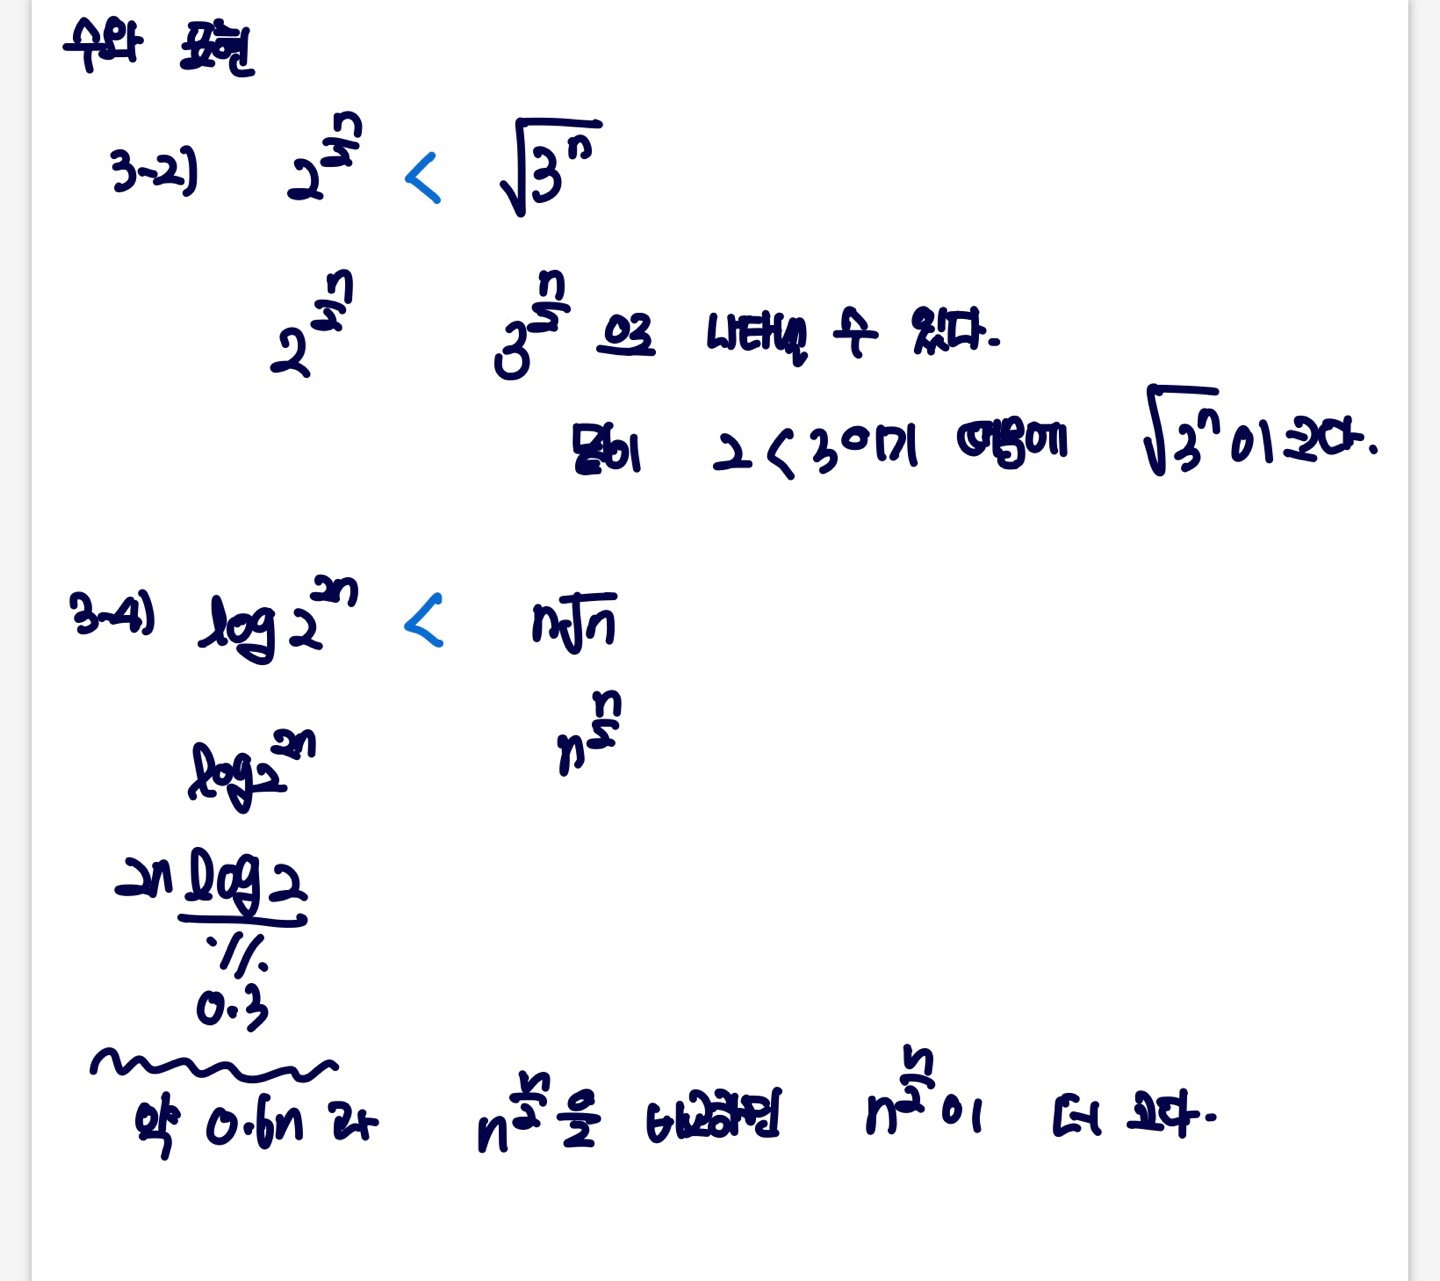 수와 표현
3-2) 2^(n/2) < √(3^n)
2^(n/2) 3^(n/2) 으로 나타낼 수 있다.
밑이 2 < 3 이기 때문에 √(3^n) 이 크다.
3-4) log 2^(2n) < n√n
n^(n/2)
log 2^(2n)
2n log 2
≒
0.3
약 0.6n 과 n^(n/2) 을 비교하면 n^(n/2) 이 더 크다.